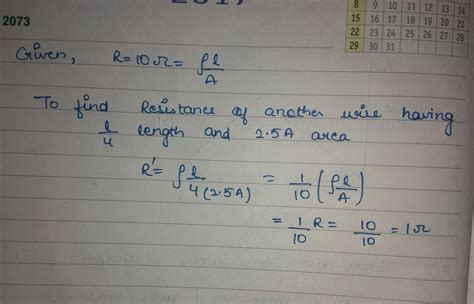 2017
8 9 10 11 12 13 14
15 16 17 18 19 20 21
22 23 24 25 26 27 28
29 30 31
2073
Given, R = 10 Ω = ρl/A
To find Resistance of another wire having
l/4 length and 2.5A area
R' = ρ l/4(2.5A) = 1/10 (ρl/A)
= 1/10 R = 10/10 = 1Ω